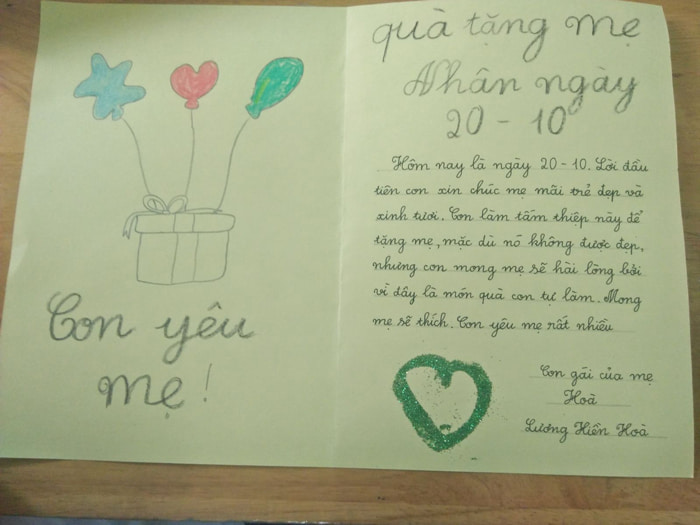 Con yêu
mẹ!
quà tặng mẹ
Nhân ngày
20-10
Hôm nay là ngày 20-10. Lời đầu
tiên con xin chúc mẹ mãi trẻ đẹp và
xinh tươi. Con làm tấm thiệp này để
tặng mẹ, mặc dù nó không được đẹp,
nhưng con mong mẹ sẽ hài lòng bởi
vì đây là món quà con tự làm. Mong
mẹ sẽ thích. Con yêu mẹ rất nhiều
Con gái của mẹ
Hoà
Lương Hiền Hoà